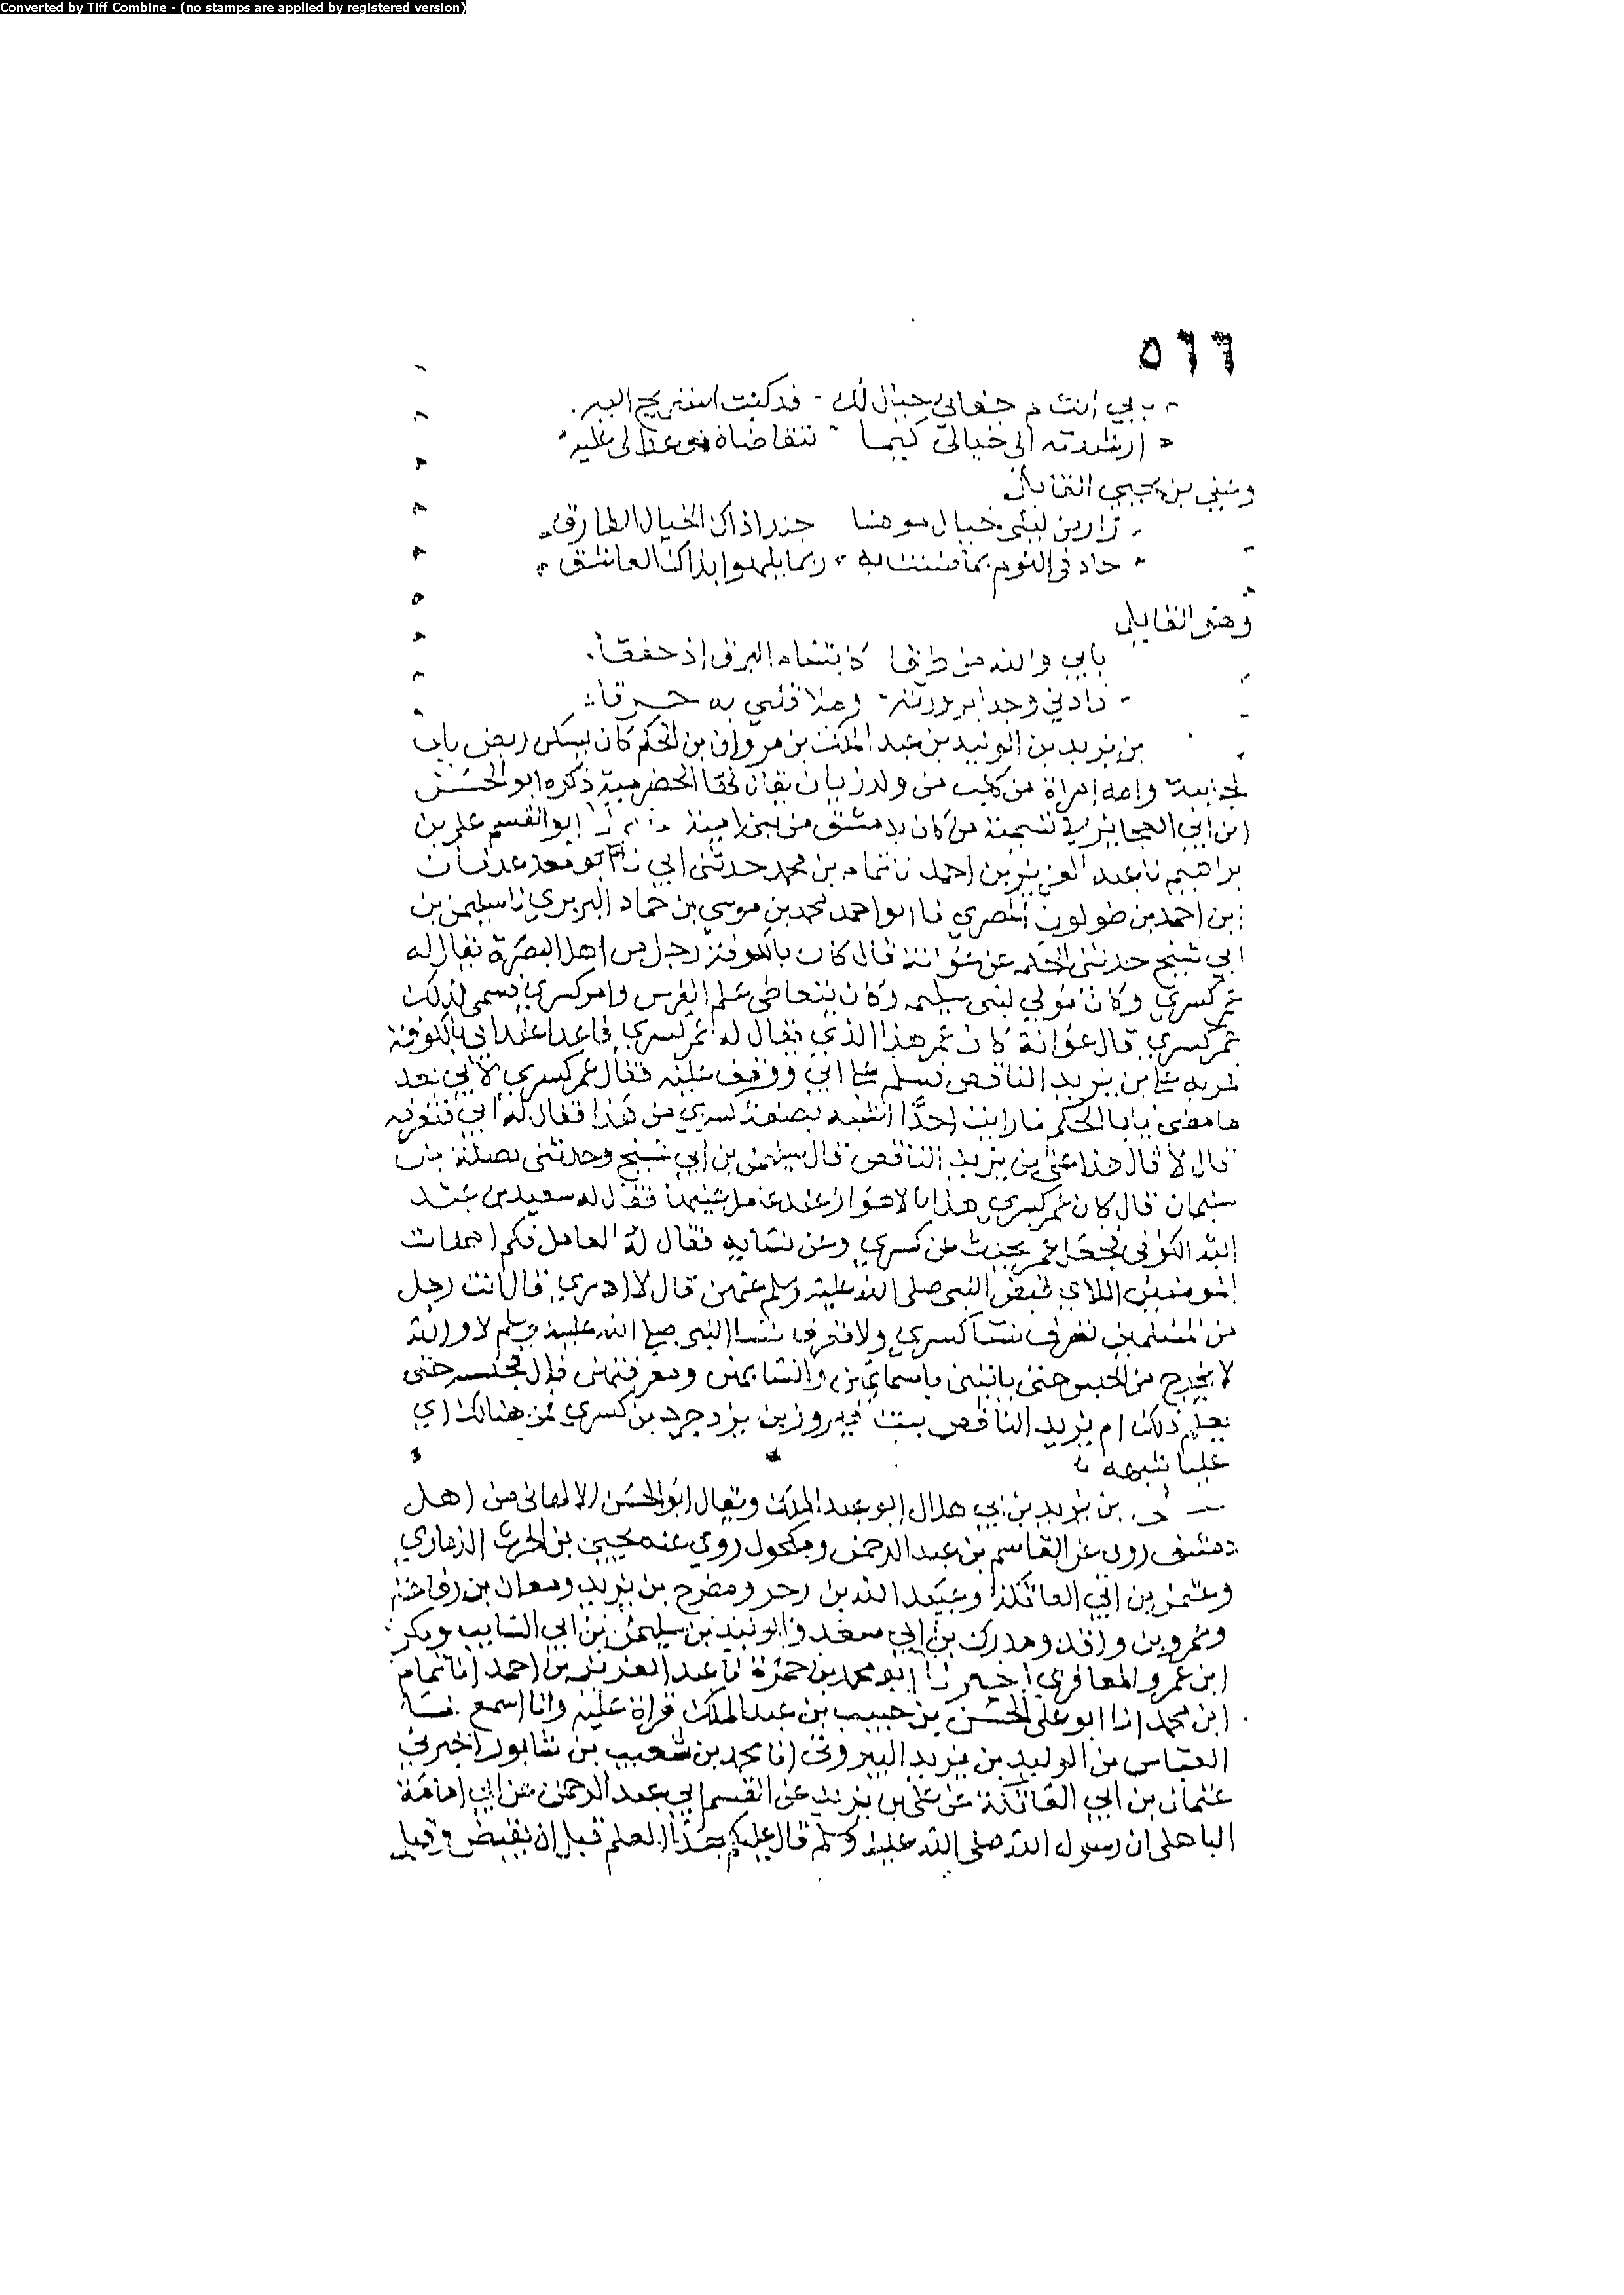 Converted by Tiff Combine - (no stamps are applied by registered version)
٥٦٦
بابي انت م جفاني خيال لك قد كنت استريح اليه
ارشدته الى خيالي كيما نتقاضاه موعدا لي عليه
وعلي بن يحيى القائل
زار من ليلى خيال موهنا حبذا ذاك الخيال الطارق
جاد في النوم بما ضنت به ربما يلهوا بذاك العاشق
وهو القايل
بابي والله من طرقا كابتسام البرق اذ خفقا
زادني وجدا برورته وملا قلبي به حرقا
بن يزيد بن الوليد بن عبد الملك بن مروان بن الحكم كان يسكن ربض باب
الجابية وامه امراة من كلب من ولد زبان يقال لها الحضرمية ذكره ابو الحسن
ابن ابي العجايز في تسمية من كان بدمشق من بني امية ابو القسم علي بن
براهيم نا عبد العزيز بن احمد نا تمام بن محمد حدثني ابي نا ابو معد عدنان
بن احمد بن طولون المصري نا ابو احمد محمد بن موسى بن حماد البربري نا سليمن بن
ابي شيخ حدثني الحكم عن عوانة قال كان بالكوفة رجل من اهل البصرة يقال له
عمر كسرى وكان مولى لبني سليم وكان يتعاطى علم الفرس وامر كسرى فسمى لذلك
عمر كسرى قال عوانة كان عمر هذا الذي يقال له عمر كسرى قاعدا عند ابي بالكوفة
فمر به علي بن يزيد الناقص فسلم على ابي ووقف عليه فقال عمر كسرى لابي بعد
ما مضى يا ابا الحكم ما رايت احدا اشبه بصفة كسرى من هذا فقال له ابي فتعرفه
قال لا قال هذا علي بن يزيد الناقص قال سليمن بن ابي شيخ وحدثني صلة بن
سليمان قال كان عمر كسرى هذا بالاهواز عند عامل عليها فقال له سعيد بن عبد
الله الكوفي فجعل عمر يحدث عن كسرى وعن نسايه فقال له العامل فكم امهات
المومنين اللاي قبض النبي صلى الله عليه وسلم عنهن قال لا ادري قال انت رجل
من المسلمين تعرف نسا كسرى ولا تعرف نسا النبي صلى الله عليه وسلم لا والله
لا يخرج من الحبس حتى ياتيني باسمايهن وانسابهن ومعرفتهن قال فحبسه حتى
يعلم ذلك ام يزيد الناقص بنت فيروز بن يزدجرد بن كسرى فمن هنالك اي
عليا شبهه
بن يزيد بن ابي هلال ابو عبد الملك ويقال ابو الحسن الالهاني من اهل
دمشق روى عن القاسم بن عبد الرحمن ومكحول روى عنه يحيى بن الحرث الذماري
وعثمن بن ابي العاتكة وعبيد الله بن زحر ومطرح بن يزيد ومعان بن رفاعة
وعمرو بن واقد ومدرك بن ابي سعد والوليد بن سليمن بن ابي السايب وبكر
ابن عمرو المعافري اخبرنا ابو محمد بن حمزة نا عبد العزيز بن احمد انا تمام
ابن محمد انا ابو علي الحسن بن حبيب بن عبد الملك قراة عليه وانا اسمع نا
العباس بن الوليد بن يزيد البيروتي انا محمد بن شعيب بن شابور اخبرني
عثمان بن ابي العاتكة عن علي بن يزيد عن القسم ابي عبد الرحمن عن ابي امامة
الباهلي ان رسول الله صلى الله عليه وسلم قال عليكم بهذا العلم قبل ان يقبض وقبل